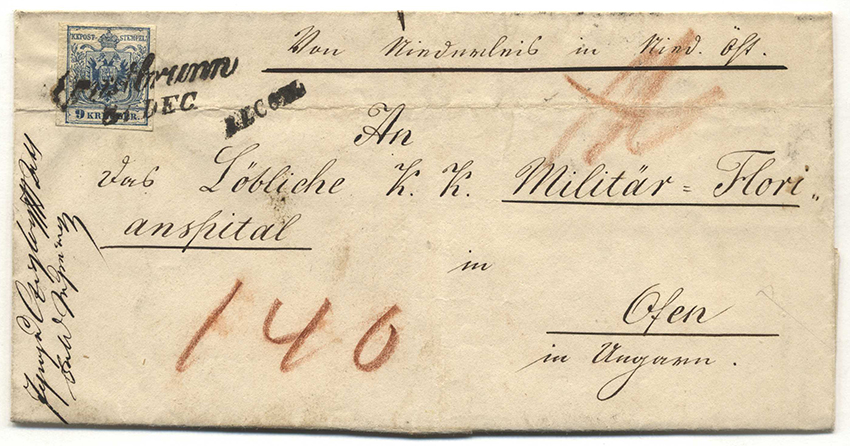 KK POST-STEMPEL
9 KREUZER
Ernstbrunn
DEC.
RECOM.
Von Niederleis in Nied. Öst.
An
Das Löbliche K. K. Militär = Flori
anspital
in
Ofen
in Ungarn.
140